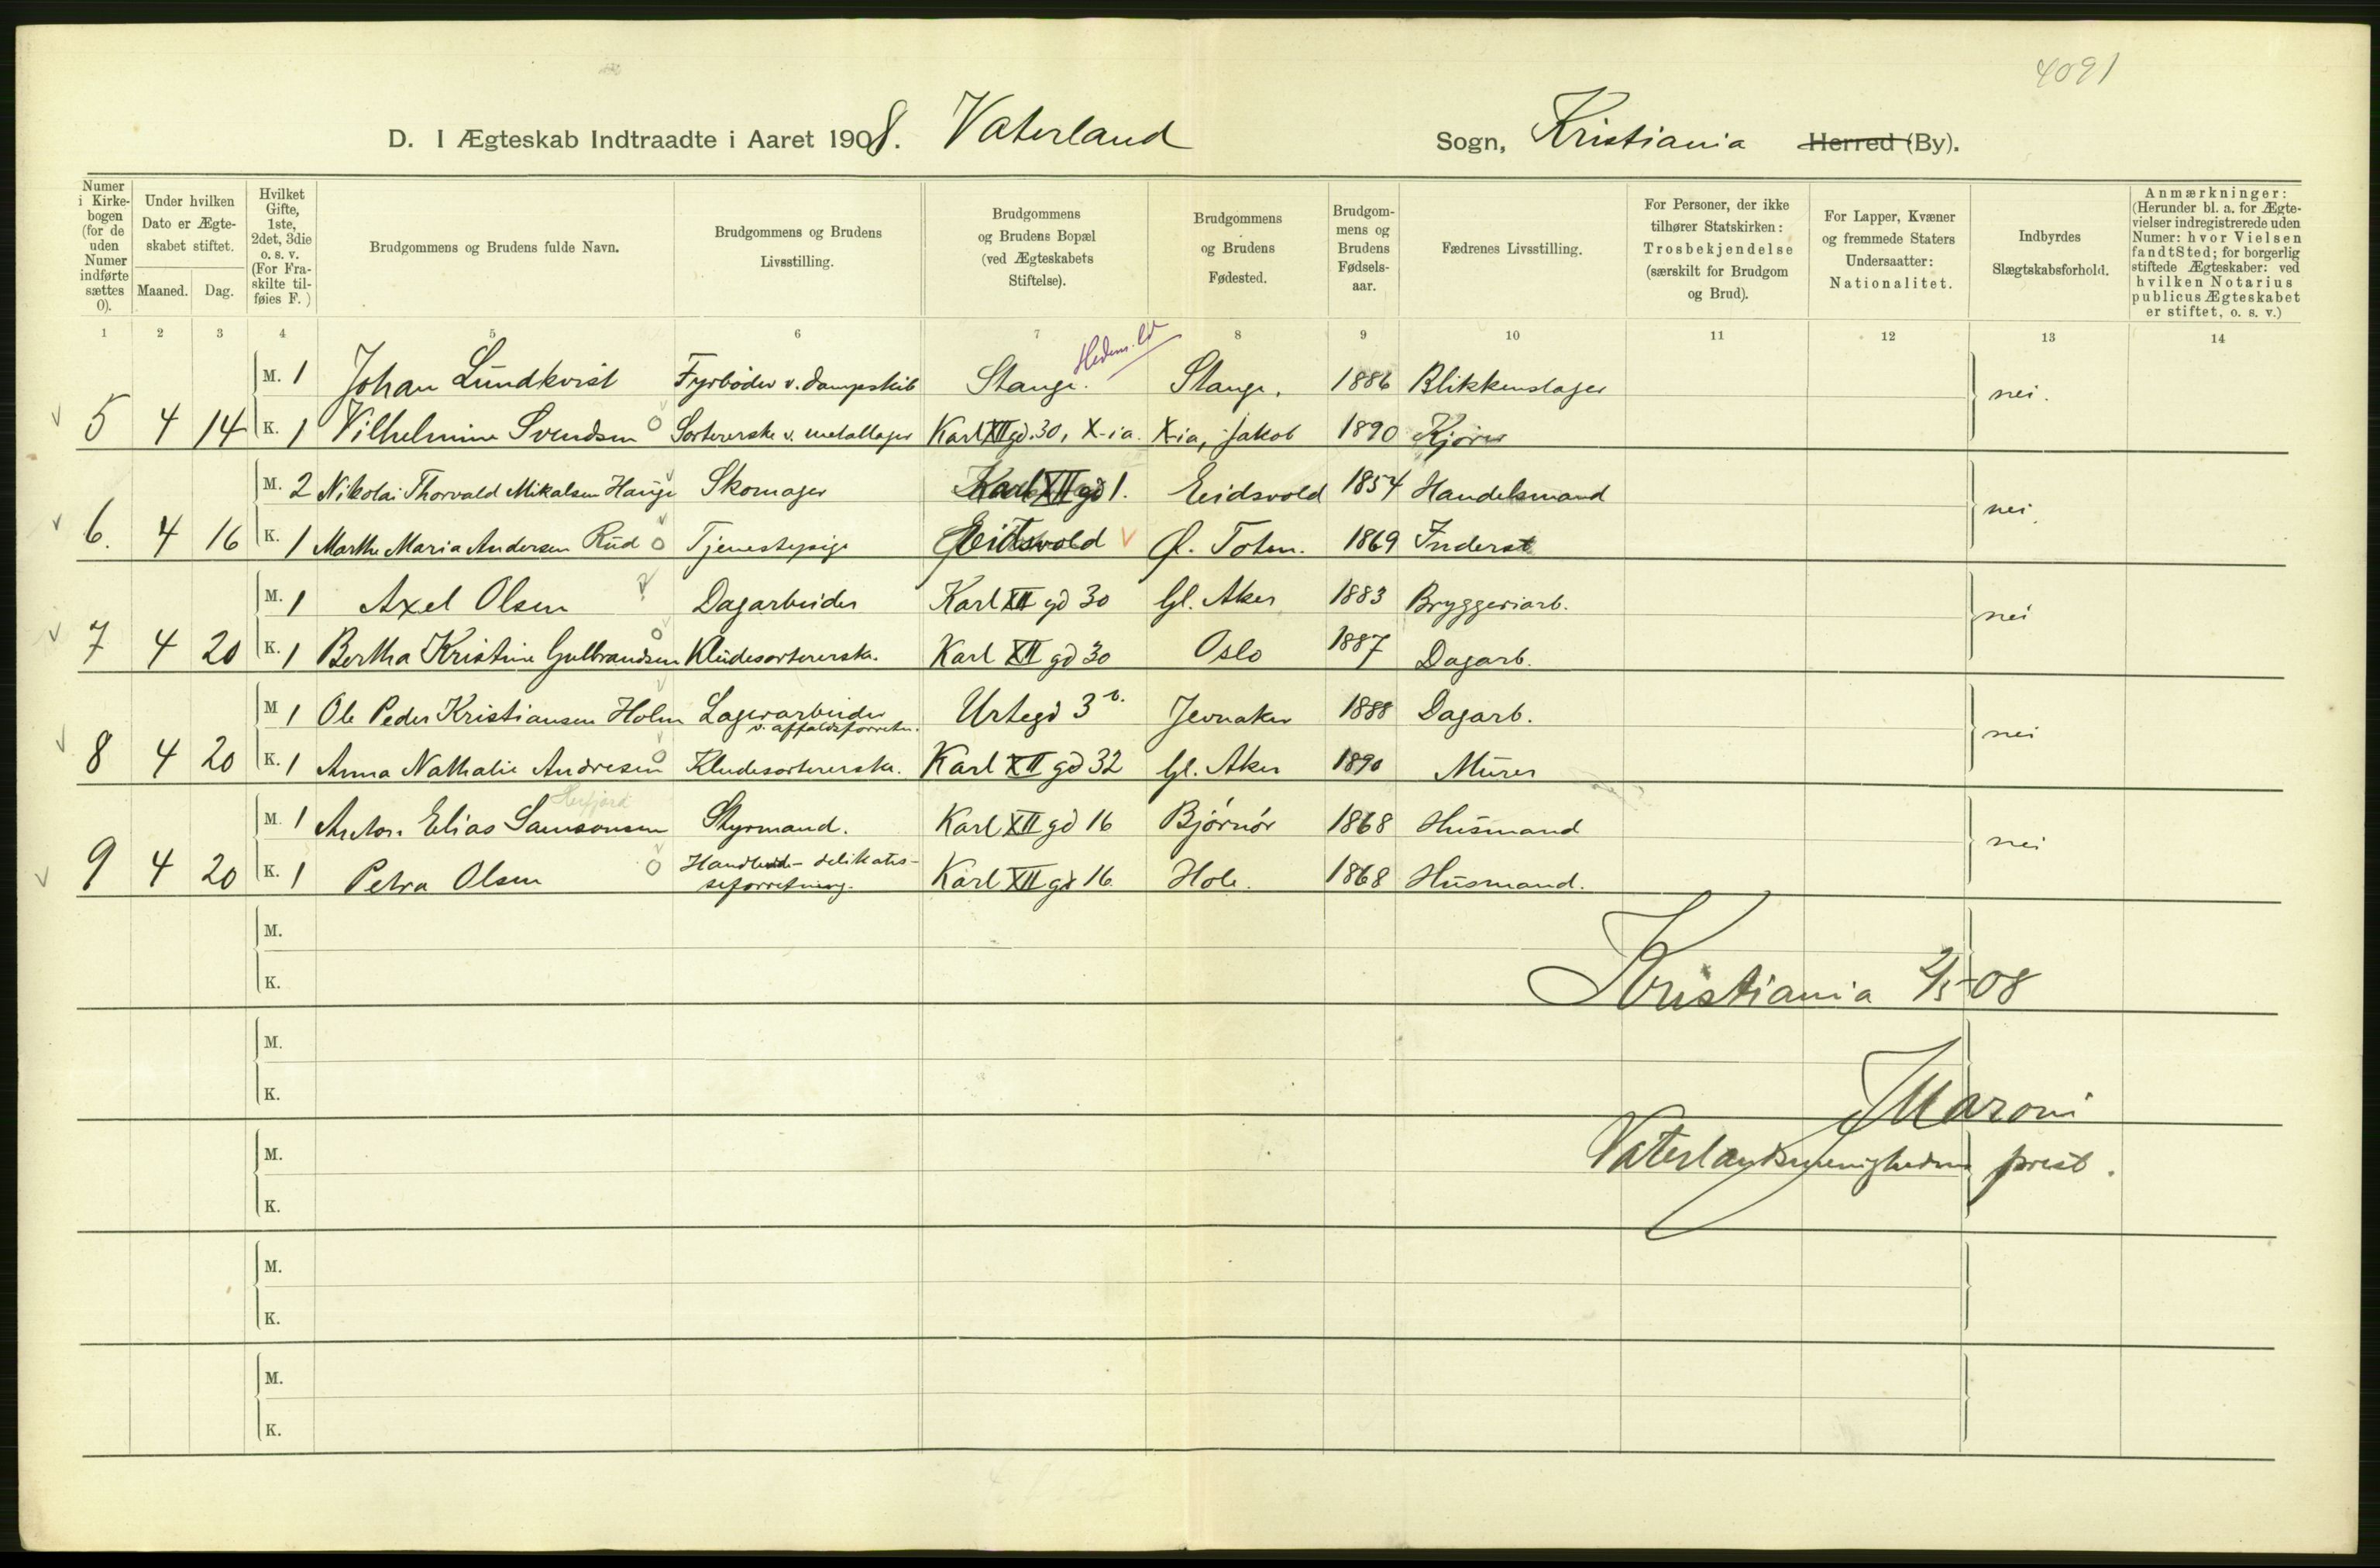 4091
D. I Ægteskab Indtraadte i Aaret 1908. Vaterland Sogn, Kristiania Herred (By).
Numer i Kirkebogen (for de uden Numer indførte sættes 0).
Under hvilken Dato er Ægteskabet stiftet.
Maaned. Dag.
Hvilket Gifte, 1ste, 2det, 3die o. s. v. (For Fraskilte tilføies F.)
Brudgommens og Brudens fulde Navn.
Brudgommens og Brudens Livsstilling.
Brudgommens og Brudens Bopæl (ved Ægteskabets Stiftelse).
Brudgommens og Brudens Fødested.
Brudgommens og Brudens Fødselsaar.
Fædrenes Livsstilling.
For Personer, der ikke tilhører Statskirken: Trosbekjendelse (særskilt for Brudgom og Brud).
For Lapper, Kvæner og fremmede Staters Undersaatter: Nationalitet.
Indbyrdes Slægtskabsforhold.
Anmærkninger: (Herunder bl. a. for Ægtevielser indregistrerede uden Numer: hvor Vielsen fandt Sted; for borgerlig stiftede Ægteskaber: ved hvilken Notarius publicus Ægteskabet er stiftet, o. s. v.)
1 2 3 4 5 6 7 8 9 10 11 12 13 14
M. 1 Johan Lundkvist Fyrbøder v. dampskib Stange. Stange. 1886 Blikkenslager
5 4 14 K. 1 Vilhelmine Svendsen Sortererske v. metallager Karl XII gd. 30, X-ia. X-ia, Jakob 1890 Kjører nei.
M. 2 Nikolai Thorvald Mikalsen Hauge Skomager Karl XII gd 1. Eidsvold 1854 Handelsmand
6. 4 16 K. 1 Marthe Maria Andersen Rud Tjenestepige Eidsvold Ø. Toten. 1869 Inderst nei.
M. 1 Axel Olsen Dagarbeider Karl XII gd 30 Gl. Aker 1883 Bryggeriarb.
7 4 20 K. 1 Bertha Kristine Gulbrandsen Kludesortererske. Karl XII gd 30 Oslo 1887 Dagarb. nei
M 1 Ole Peder Kristiansen Holm Lagerarbeider v. affaldsforretn. Urtegd 3 Jevnaker 1888 Dagarb.
8 4 20 K. 1 Anna Nathalie Andresen Kludesortererske. Karl XII gd 32 Gl. Aker 1890 Murer nei
M. 1 Anton Elias Samsonsen Styrmand. Karl XII gd 16 Bjørnør 1868 Husmand
9 4 20 K. 1 Petra Olsen delikatesseforretning. Karl XII gd 16. Hole. 1868 Husmand. nei
M.
K.
Kristiania 2/5-08
M.
K.
Maroni
M.
Vaterlandsmenigheds prest.
K.
M.
K.
M.
K.